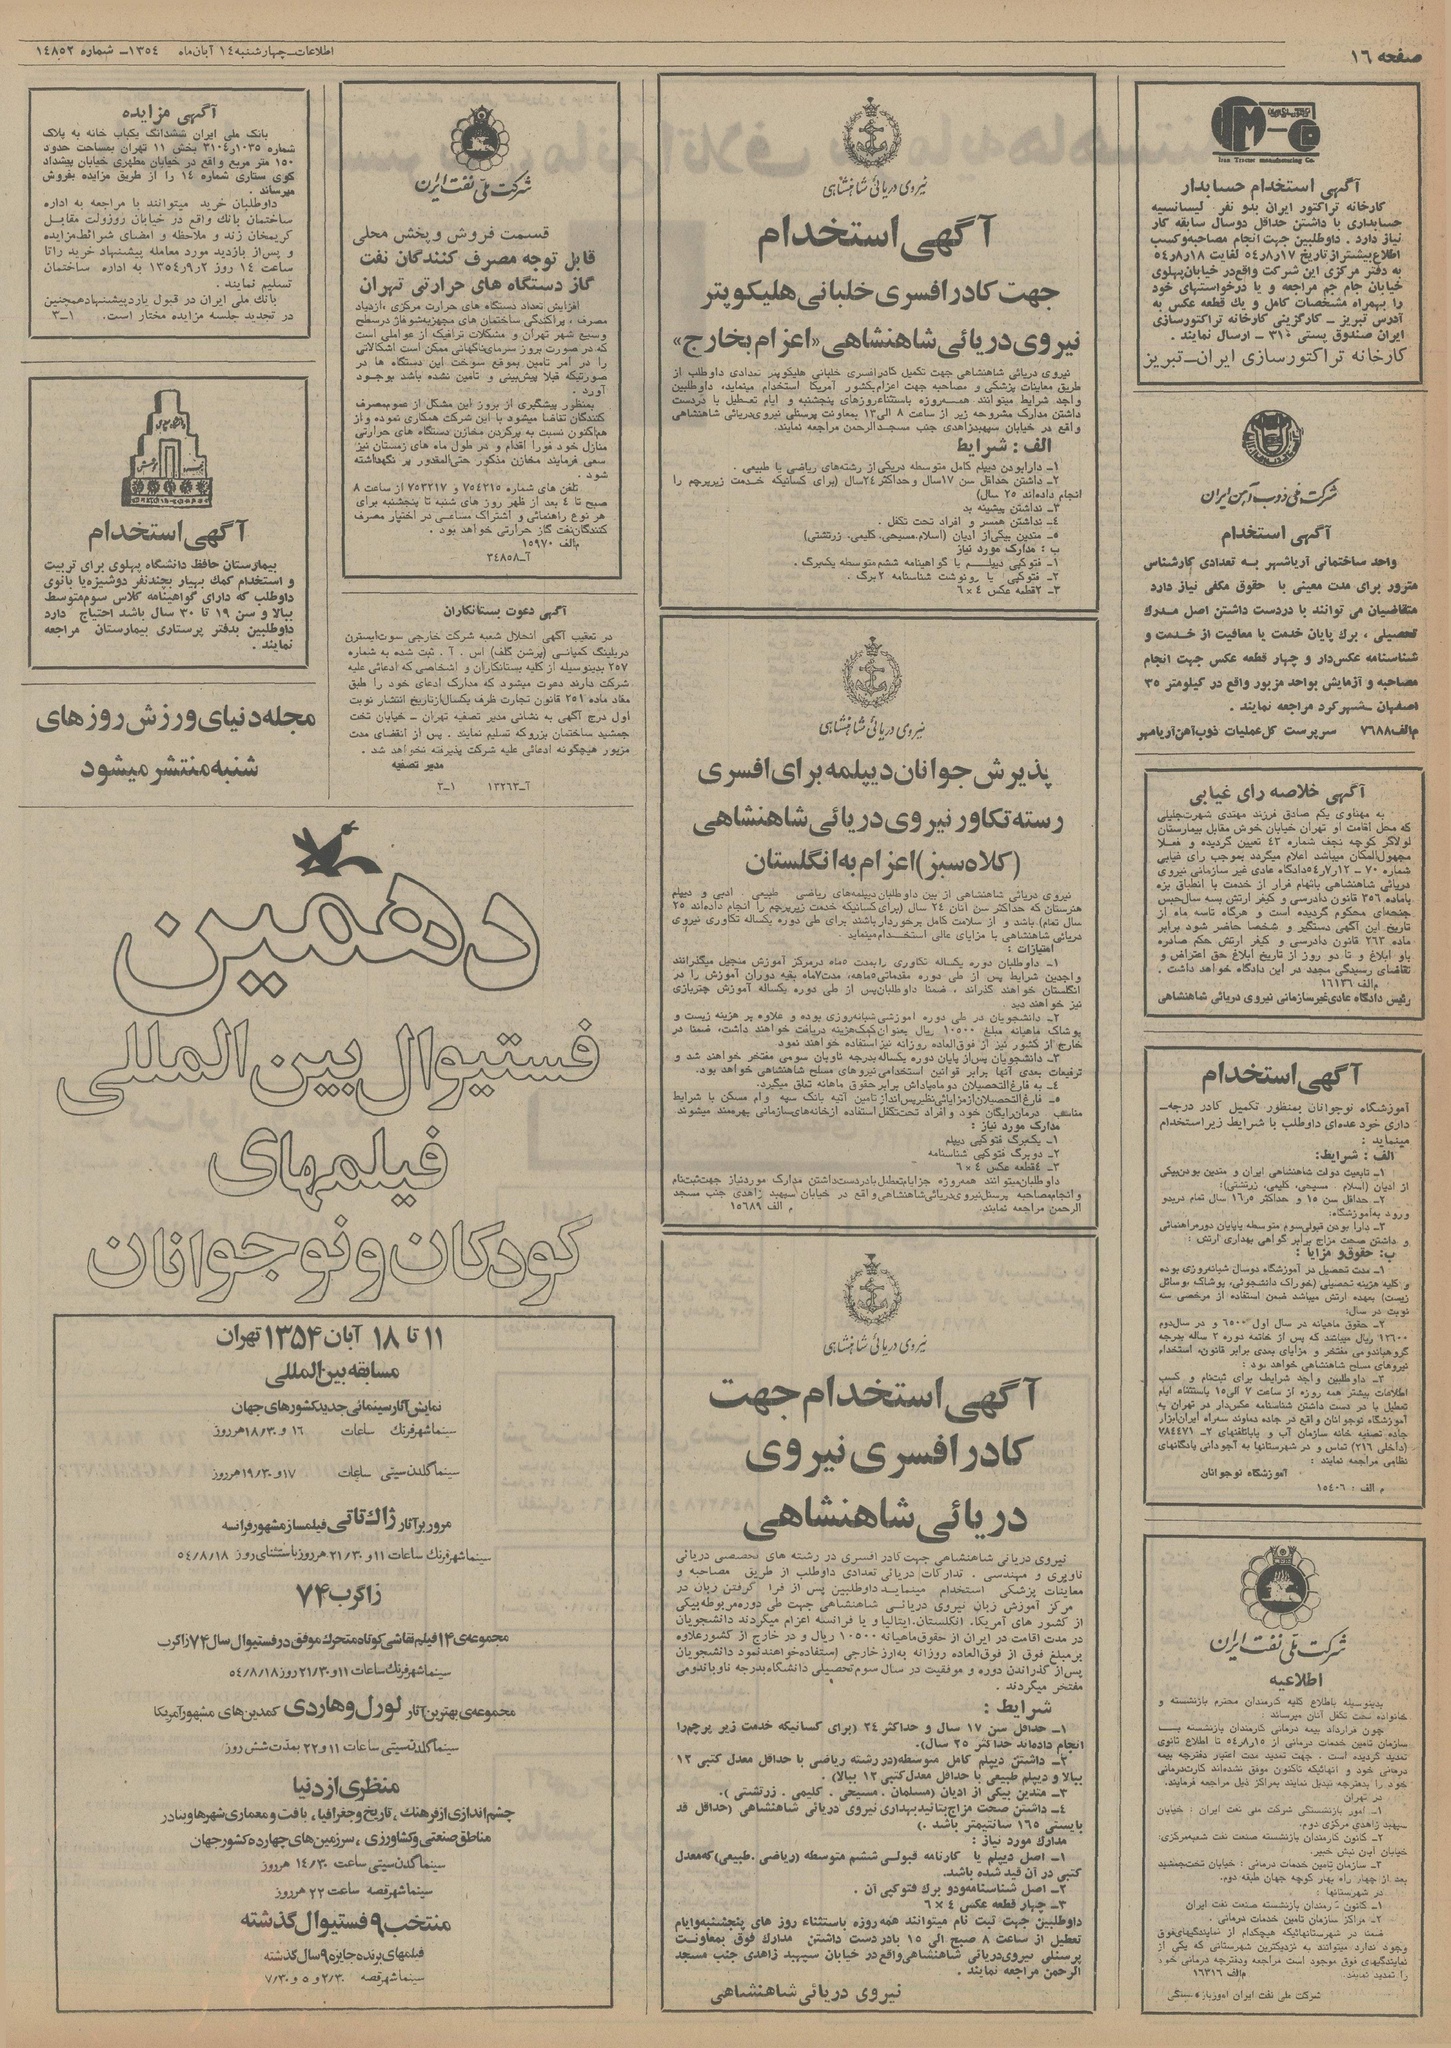 صفحه ۱۶
اطلاعات_چهارشنبه ۱٤ آبان‌ماه ۱۳٥٤_ شماره ۱٤۸٥۲
Iran Tractor manufacturing Co.
آگهی استخدام حسابدار
کارخانه تراکتور ایران بدو نفر لیسانسیه
حسابداری با داشتن حداقل دوسال سابقه کار
نیاز دارد . داوطلبین جهت انجام مصاحبه‌وکسب
اطلاع‌بیشتر‌از تاریخ ۱۷ر۸ر٥٤ لغایت ۱۸ر۸ر٥٤
به دفتر مرکزی این شرکت واقع‌در خیابان‌پهلوی
خیابان جام جم مراجعه و یا درخواستهای خود
را بهمراه مشخصات کامل و یك قطعه عکس به
آدرس تبریز _ کارگزینی کارخانه تراکتورسازی
ایران صندوق پستی ۳۱۰ _ ارسال نمایند .
کارخانه تراکتورسازی ایران_تبریز
شرکت ملی ذوب آهن ایران
آگهی استخدام
واحد ساختمانی آریاشهر به تعدادی کارشناس
مترور برای مدت معینی با حقوق مکفی نیاز دارد
متقاضیان می توانند با دردست داشتن اصل مدرك
تحصیلی ، برك پایان خدمت یا معافیت از خدمت و
شناسنامه عکس‌دار و چهار قطعه عکس جهت انجام
مصاحبه و آزمایش بواحد مزبور واقع در کیلومتر ۳٥
اصفهان _شهرکرد مراجعه نمایند .
م‌الف۷٦۸۸ سرپرست کل‌عملیات ذوب‌آهن‌آریامهر
آگهی خلاصه رای غیابی
به مهناوی یکم صادق فرزند مهتدی شهرت‌جلیلی
که محل اقامت او تهران خیابان خوش مقابل بیمارستان
لولاگر کوچه نجف شماره ٤۳ تعیین گردیده و فعلا
مجهول‌المکان میباشد اعلام میگردد بموجب رای غیابی
شماره ۷۰ _ ۱۲ر۷ر٥٤دادگاه عادی غیر سازمانی نیروی
دریائی شاهنشاهی باتهام فرار از خدمت با انطباق بزه
باماده ۳٥٦ قانون دادرسی و کیفر ارتش بسه سال‌حبس
جنحه‌ای محکوم گردیده است و هرگاه تاسه ماه از
تاریخ این آگهی دستگیر و شخصا حاضر شود برابر
ماده ۲٦۳ قانون دادرسی و کیفر ارتش حکم صادره
باو ابلاغ و تا دو روز از تاریخ ابلاغ حق اعتراض و
تقاضای رسیدگی مجدد در این دادگاه خواهد داشت .
م‌الف ۱٦۱۳٦
رئیس دادگاه عادی‌غیرسازمانی نیروی دریائی شاهنشاهی
آگهی استخدام
آموزشگاه نوجوانان بمنظور تکمیل کادر درجه_
داری خود عده‌ای داوطلب با شرایط زیر‌استخدام
مینماید :
الف : شرایط:
۱_ تابعیت دولت شاهنشاهی ایران و متدین بودن‌بیکی
از ادیان (اسلام _ مسیحی، کلیمی، زرتشتی):
۲_ حداقل سن ۱٥ و حداکثر ٥ر۱٦ سال تمام دربدو
ورود به‌آموزشگاه:
۳_ دارا بودن قبولی‌سوم متوسطه یاپایان دوره‌راهنمائی
و داشتن صحت مزاج برابر گواهی بهداری ارتش :
ب: حقوق‌و مزایا :
۱_ مدت تحصیل در آموزشگاه دوسال شبانه‌روزی بوده
و کلیه هزینه تحصیلی (خوراك دانشجوئی، پوشاك ،وسائل
زیست) بعهده ارتش میباشد ضمن استفاده از مرخصی سه
نوبت در سال:
۲_ حقوق ماهیانه در سال اول ٦٥۰۰ و در سال‌دوم
۱۲٦۰۰ ریال میباشد که پس از خاتمه دوره ۲ ساله بدرجه
گروهباندومی مفتخر و مزایای بعدی برابر قانون، استخدام
نیروهای مسلح شاهنشاهی خواهد بود :
۳_ داوطلبین واجد شرایط برای ثبت‌نام و کسب
اطلاعات بیشتر همه روزه از ساعت ۷ الی۱٥ باستثناء ایام
تعطیل با در دست داشتن شناسنامه عکس‌دار در تهران به
آموزشگاه نوجوانان واقع در جاده دماوند سه‌راه ایران‌ابزار
جاده تصفیه خانه سازمان آب و یاباتلفنهای ۲_ ۷۸٤٤۷۱
(داخلی ۲۱٦) تماس و در شهرستانها به آجودانی پادگانهای
نظامی مراجعه نمایند :
آموزشگاه نوجوانان
م الف : ۱٥٤۰٦
شرکت ملی نفت ایران
اطلاعیه
بدینوسیله باطلاع کلیه کارمندان محترم بازنشسته و
خانواده تحت تکفل آنان میرساند :
چون قرارداد بیمه درمانی کارمندان بازنشسته با
سازمان تامین خدمات درمانی از ۱٥ر۸ر٥٤ تا اطلاع ثانوی
تمدید گردیده است . جهت تمدید مدت اعتبار دفترچه بیمه
درمانی خود و آنهائیکه تاکنون موفق نشده‌اند کارت‌درمانی
خود را بدفترچه تبدیل نمایند بمراکز ذیل مراجعه فرمایند.
در تهران
۱_ امور بازنشستگی شرکت ملی نفت ایران : خیابان
سپهبد زاهدی مرکزی دوم.
۲_ کانون کارمندان بازنشسته صنعت نفت شعبه‌مرکزی:
خیابان آبان نبش خبیر.
۳_ سازمان تامین خدمات درمانی : خیابان تخت‌جمشید
بعد از چهار راه بهار کوچه جهان طبقه دوم.
در شهرستانها :
۱_ کانون کارمندان بازنشسته صنعت نفت ایران
۲_ مراکز سازمان تامین خدمات درمانی .
ضمنا در شهرستانهائیکه هیچکدام از نمایندگیهای‌فوق
وجود ندارد میتوانند به نزدیکترین شهرستانی که یکی از
نمایندگیهای فوق موجود است مراجعه ودفترچه درمانی خود
را تمدید نمایند. م‌الف ۱٦۳۱٦
شرکت ملی نفت ایران امور‌بازنشستگی
نیروی دریائی شاهنشاهی
آگهی استخدام
جهت کادر افسری خلبانی هلیکوپتر
نیروی دریائی شاهنشاهی «اعزام بخارج»
نیروی دریائی شاهنشاهی جهت تکمیل کادرافسری خلبانی هلیکوپتر تعدادی داوطلب از
طریق معاینات پزشکی و مصاحبه جهت اعزام‌بکشور آمریکا استخدام مینماید، داوطلبین
واجد شرایط میتوانند همه‌روزه باستثناءروزهای پنجشنبه و ایام تعطیل با دردست
داشتن مدارك مشروحه زیر از ساعت ۸ الی۱۳ بمعاونت پرسنلی نیروی‌دریائی شاهنشاهی
واقع در خیابان سپهبدزاهدی جنب مسجدالرحمن مراجعه نمایند.
الف : شرایط
۱_ دارابودن دیپلم کامل متوسطه دریکی از رشته‌های ریاضی یا طبیعی .
۲_ داشتن حداقل سن ۱۷سال و حداکثر ۲٤سال (برای کسانیکه خدمت زیرپرچم را
انجام داده‌اند ۲٥ سال)
۳_ نداشتن پیشینه بد
٤_ نداشتن همسر و افراد تحت تکفل .
٥_ متدین بیکی از ادیان (اسلام،مسیحی، کلیمی، زرتشتی)
ب : مدارك مورد نیاز
۱_ فتوکپی دیپلم یا گواهینامه ششم‌متوسطه یک‌برگ .
۲_ فتوکپی یا رونوشت شناسنامه ۲ برگ .
۳_ ۲قطعه عکس ٤ × ٦
نیروی دریائی شاهنشاهی
پذیرش جوانان دیپلمه برای افسری
رسته تکاور نیروی دریائی شاهنشاهی
(کلاه سبز) اعزام به انگلستان
نیروی دریائی شاهنشاهی از بین داوطلبان‌دیپلمه‌های ریاضی _ طبیعی . ادبی و دیپلم
هنرستان که حداکثر سن آنان ۲٤ سال (برای کسانیکه خدمت زیرپرچم را انجام داده‌اند ۲٥
سال تمام) باشد و از سلامت کامل برخوردارباشند برای طی دوره یکساله تکاوری نیروی
دریائی شاهنشاهی با مزایای عالی استخدام‌مینماید .
امتیازات :
۱_ داوطلبان دوره یکساله تکاوری رابمدت ٥ماه درمرکز آموزش منجیل میگذرانند
واجدین شرایط پس از طی دوره مقدماتی٥ماهه، مدت۷ماه بقیه دوران آموزش را در
انگلستان خواهند گذراند ، ضمنا داوطلبان‌پس از طی دوره یکساله آموزش چتربازی
نیز خواهند دید .
۲_ دانشجویان در طی دوره آموزشی شبانه‌روزی بوده و علاوه بر هزینه زیست و
پوشاك ماهیانه مبلغ ۱۰٥۰۰ ریال بعنوان‌کمک‌هزینه دریافت خواهند داشت، ضمنا در
خارج از کشور نیز از فوق‌العاده روزانه نیزاستفاده خواهند نمود
۳_ دانشجویان پس‌از پایان دوره یکساله‌بدرجه ناوبان سومی مفتخر خواهند شد و
ترفیعات بعدی آنها برابر قوانین استخدامی نیروهای مسلح شاهنشاهی خواهد بود.
٤_ به فارغ‌التحصیلان دوماه‌پاداش برابر‌حقوق ماهانه تعلق میگیرد.
٥_ فارغ‌التحصیلان‌ازمزایائی‌نظیر‌پس‌انداز‌تامین آتیه بانک سپه و وام مسکن با شرایط
مناسب _ درمان‌رایگان خود و افراد تحت‌تکفل استفاده ازخانه‌های‌سازمانی بهره‌مند میشوند
مدارك مورد نیاز :
۱_ یک‌برگ فتوکپی دیپلم
۲_ دوبرگ فتوکپی شناسنامه
۳_ ٤قطعه عکس ٤ × ٦
داوطلبان‌میتوانند همه‌روزه جزایام‌تعطیل‌بادردست‌داشتن مدارك موردنیاز جهت‌ثبت‌نام
وانجام‌مصاحبه پرسنل‌نیروی‌دریائی‌شاهنشاهی‌واقع در خیابان سپهبد زاهدی جنب مسجد
الرحمن مراجعه نمایند. م الف ۱٥٦۸۹
نیروی دریائی شاهنشاهی
آگهی استخدام جهت
کادر افسری نیروی
دریائی شاهنشاهی
نیروی دریائی شاهنشاهی جهت‌کادر افسری در رشته های تخصصی دریائی
ناوبری و مهندسی . تدارکات دریائی تعدادی داوطلب از طریق مصاحبه و
معاینات پزشکی استخدام مینماید داوطلبین پس از فرا گرفتن زبان در
مرکز آموزش زبان نیروی دریائی شاهنشاهی جهت طی دوره‌مربوطه‌بیکی
از کشور های آمریکا، انگلستان،ایتالیا و یا فرانسه اعزام میگردند دانشجویان
در مدت اقامت در ایران از حقوق‌ماهیانه ۱۰٥۰۰ ریال و در خارج از کشورعلاوه
برمبلغ فوق از فوق‌العاده روزانه به‌ارز خارجی استفاده‌خواهندنمود دانشجویان
پس‌از گذراندن دوره و موفقیت در سال سوم‌تحصیلی دانشگاه‌بدرجه ناوباندومی
مفتخر میگردند .
شرایط :
۱_ حداقل سن ۱۷ سال و حداکثر ۲٤ (برای کسانیکه خدمت زیر پرچم‌را
انجام داده‌اند حداکثر ۲٥ سال).
۲_ داشتن دیپلم کامل متوسطه(در رشته ریاضی با حداقل معدل کتبی ۱۲
ببالا و دیپلم طبیعی با حداقل معدل کتبی ۱۳ ببالا) .
۳_ متدین بیکی از ادیان (مسلمان . مسیحی . کلیمی . زرتشتی ).
٤_ داشتن صحت مزاج‌بتائیدبهداری نیروی دریائی شاهنشاهی (حداقل قد
بایستی ۱٦٥ سانتیمتر باشد .)
مدارك مورد نیاز :
۱_ اصل دیپلم یا کارنامه قبولی ششم متوسطه (ریاضی .طبیعی)که‌معدل
کتبی در آن قید شده باشد.
۲_ اصل شناسنامه‌ودو برك فتوکپی آن .
۳_ چهار قطعه عکس ٤ × ٦
داوطلبین جهت ثبت نام میتوانند همه روزه باستثناء روز های پنجشنبه‌وایام
تعطیل از ساعت ۸ صبح الی ۱٥ بادردست داشتن مدارك فوق بمعاونت
پرسنلی نیروی‌دریائی شاهنشاهی‌واقع در خیابان سپهبد زاهدی جنب مسجد
الرحمن مراجعه نمایند .
نیروی دریائی شاهنشاهی
شرکت ملی نفت ایران
قسمت فروش و پخش محلی
قابل توجه مصرف کنندگان نفت
گاز دستگاه های حرارتی تهران
افزایش تعداد دستگاه های حرارت مرکزی ،ازدیاد
مصرف ، پراکندگی ساختمان های مجهزبه‌شوفاژ درسطح
وسیع شهر تهران و مشکلات ترافیک از عواملی است
که در صورت بروز سرمای‌ناگهانی ممکن است اشکالاتی
را در امر تامین بموقع سوخت این دستگاه ها در
صورتیکه قبلا پیش‌بینی و تامین نشده باشد بوجود
آورد .
بمنظور پیشگیری از بروز این مشکل از عموم‌مصرف
کنندگان تقاضا میشود با این شرکت همکاری نموده و از
هم‌اکنون نسبت به پرکردن مخازن دستگاه های حرارتی
منازل خود فورا اقدام و در طول ماه های زمستان نیز
سعی فرمایند مخازن مذکور حتی‌المقدور پر نگهداشته
شود .
تلفن های شماره ۷٥٤۲۱٥ و ۷٥۳۲۱۷ از ساعت ۸
صبح تا ٤ بعد از ظهر روز های شنبه تا پنجشنبه برای
هر نوع راهنمائی و اشتراك مساعی در اختیار مصرف
کنندگان‌نفت گاز حرارتی خواهد بود .
م‌الف ۱٥۹۷۰
آ_۳٤۸٥۸
آگهی دعوت بستانکاران
در تعقیب آگهی انحلال شعبه شرکت خارجی سوت‌ایسترن
دریلینگ کمپانی (پرشن گلف) اس . آ . ثبت شده به شماره
۲٥۷ بدینوسیله از کلیه بستانکاران و اشخاصی که ادعائی علیه
شرکت دارند دعوت میشود که مدارك ادعای خود را طبق
مفاد ماده ۲٥۱ قانون تجارت ظرف یکسال‌ازتاریخ انتشار نوبت
اول درج آگهی به نشانی مدیر تصفیه تهران _ خیابان تخت
جمشید ساختمان بزروکه تسلیم نمایند . پس از انقضای مدت
مزبور هیچگونه ادعائی علیه شرکت پذیرفته نخواهد شد .
مدیر تصفیه
آ_۱۳۲٦۳ ۱_۳
آگهی مزایده
بانک ملی ایران ششدانگ یکباب خانه به پلاك
شماره ۱۰۳٥ر۳۱۰٤ بخش ۱۱ تهران بمساحت حدود
۱٥۰ متر مربع واقع در خیابان مطهری خیابان پیشداد
کوی ستاری شماره ۱٤ را از طریق مزایده بفروش
میرساند .
داوطلبان خرید میتوانند با مراجعه به اداره
ساختمان بانك واقع در خیابان روزولت مقابل
کریمخان زند و ملاحظه و امضای شرائط‌مزایده
و پس‌از بازدید مورد معامله پیشنهاد خرید راتا
ساعت ۱٤ روز ۲ر۹ر۱۳٥٤ به اداره ساختمان
تسلیم نمایند .
بانك ملی ایران در قبول یاردپیشنهادهمچنین
در تجدید جلسه مزایده مختار است. ۱_۳
آگهی استخدام
بیمارستان حافظ دانشگاه پهلوی برای تربیت
و استخدام کمك بهیار بچندنفر دوشیزه‌یا بانوی
داوطلب که دارای گواهینامه کلاس سوم‌متوسط
ببالا و سن ۱۹ تا ۳۰ سال باشد احتیاج دارد
داوطلبین بدفتر پرستاری بیمارستان مراجعه
نمایند .
مجله دنیای ورزش روزهای
شنبه منتشر میشود
دهمین
فستیوال بین المللی
فیلمهای
کودکان و نوجوانان
۱۱ تا ۱۸ آبان ۱۳۵۴ تهران
مسابقه بین‌المللی
نمایش آثار سینمائی جدید کشورهای جهان
سینما شهر فرنگ ساعات ۱۶ و ۱۸/۳۰ هر روز
سینما گلدن سیتی ساعات ۱۷ و ۱۹/۳۰ هر روز
مرور بر آثار ژاك تاتی فیلمساز مشهور فرانسه
سینما شهر فرنگ ساعات ۱۱ و ۲۱/۳۰ هر روز باستثنای روز ۵۴/۸/۱۸
زاگرب ۷۴
مجموعه‌ی ۱۴ فیلم نقاشی کوتاه متحرك موفق در فستیوال سال ۷۴ زاگرب
سینما شهر فرنگ ساعات ۱۱ و ۲۱/۳۰ روز ۵۴/۸/۱۸
مجموعه‌ی بهترین آثار لورل و هاردی کمدین‌های مشهور آمریکا
سینما گلدن سیتی ساعات ۱۱ و ۲۲ بمدت شش روز
منظری از دنیا
چشم‌اندازی از فرهنگ ، تاریخ و جغرافیا ، بافت و معماری شهرها و بنادر
مناطق صنعتی و کشاورزی ، سرزمین‌های چهارده کشور جهان
سینما گلدن سیتی ساعت ۱۴/۳۰ هر روز
سینما شهر قصه ساعت ۲۲ هر روز
منتخب ۹ فستیوال گذشته
فیلمهای برنده جایزه ۹ سال گذشته
سینما شهر قصه ۲/۳۰ و ۵ و ۷/۳۰